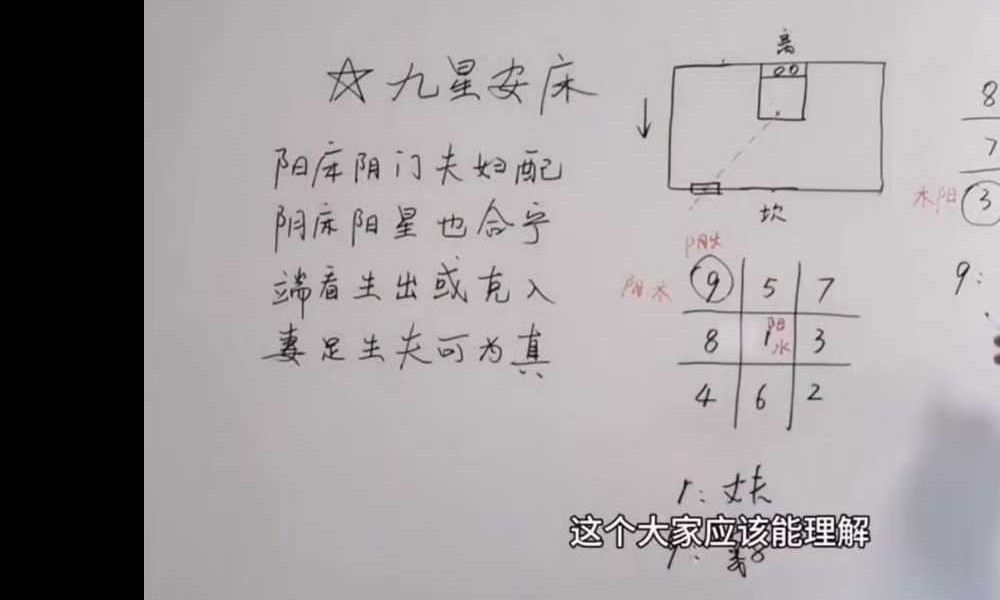 ☆九星安床
阳床阴门夫妇配
阴床阳星也合乎
端看生出或克入
妻足生夫可为真
离
坎
阴火
9 5 7
8 1 阳水 3
4 6 2
1: 丈夫
这个大家应该能理解
8
7
木阳 3
9: